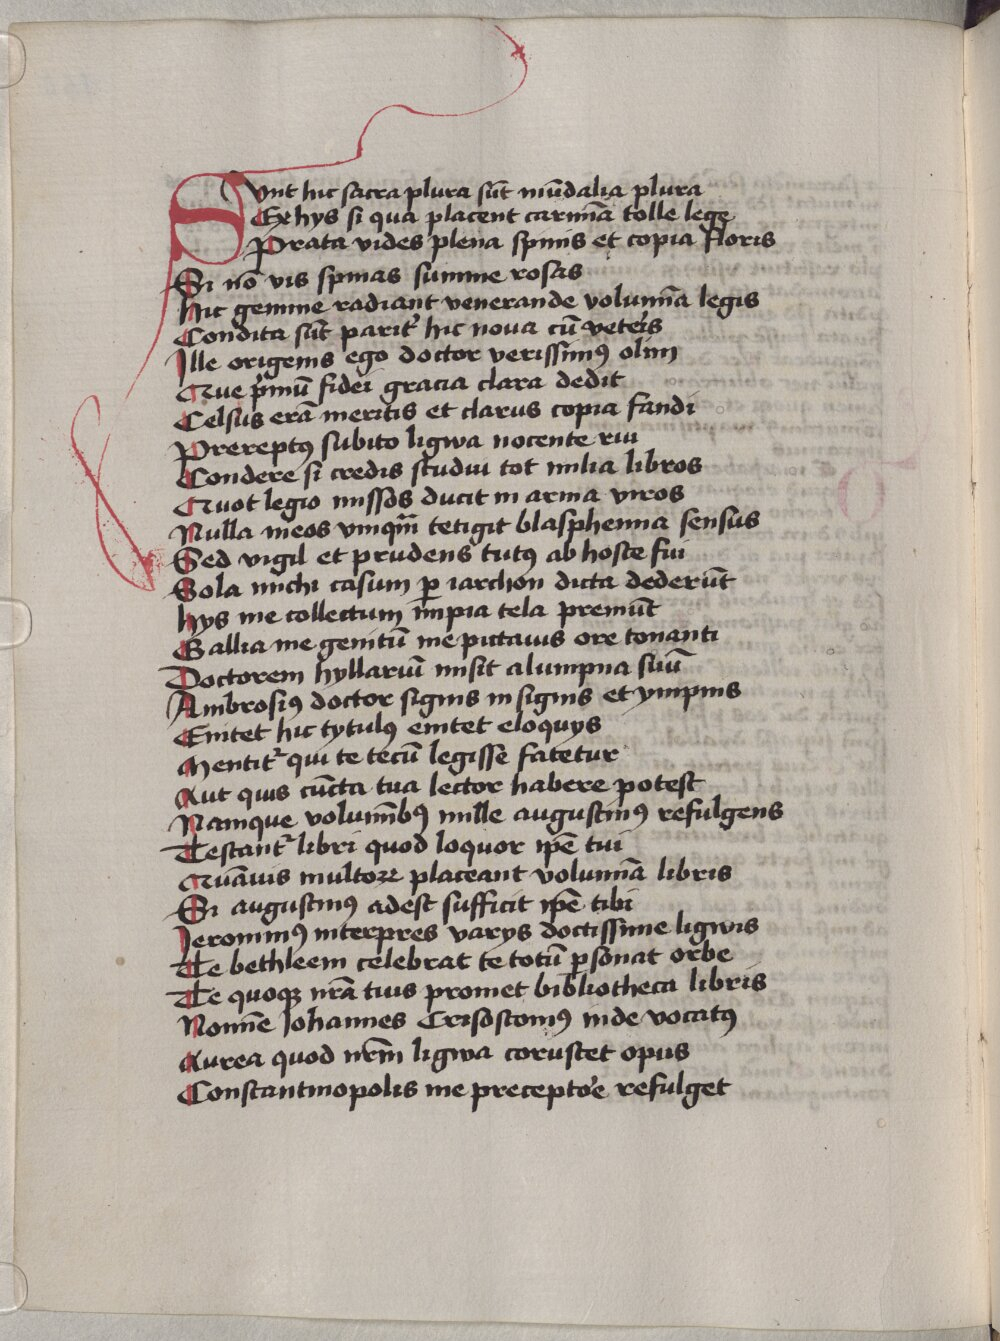 Sunt hic sacra plura sūt mūdalia plura
Ex hys si qua placent carmīa tolle lege
Prata vides plena spinis et copia floris
Si nō vis spinas summe rosas
Hic gemme radiant venerande volumīa legis
Condita sūt parit͛ hic nova cū vet̾is
Ille origenis ego doctor verissimꝰ olim
Que p̾mū fidei gracia clara dedit
Celsus erā meritis et clarus copia fandi
Prereptꝰ subito ligwa nocente rui
Condere si credis studui tot milia libros
Quot legio missos ducit in arma viros
Nulla meos vmqm̄ tetigit blasphemia sensus
Sed vigil et prudens tutꝰ ab hoste fui
Sola michi casum ꝑ iarchon dicta dederūt
hys me collectum īmpia tela premūt
Gallia me genitū me pictauis ore tonanti
Doctorem hyllariū misit alumpna suū
Ambrosiꝰ doctor signis in signis et ympnis
Enitet hic tytulꝰ enitet eloquys
Mentit͛ qui te tecū legisse fatetur
Aut quis cūcta tua lector habere potest
Namque volumībꝰ mille augustinꝰ refulgens
Testant͛ libri quod loquor ip̄e tui
Quāuis multoꝝ placeant volumīa libris
Si augustinꝰ adest sufficit ip̄e tibi
Jeronimꝰ interpres varys doctissime ligwis
Te bethleem celebrat te totū ꝑsonat orbe
Te quoqꝫ nr̄a tuis promet bibliotheca libris
Nomīe Johannes Crisostomꝰ inde vocatꝰ
Aurea quod nr̄m ligwa coruscet opus
Constantinopolis me precepto̾e refulget